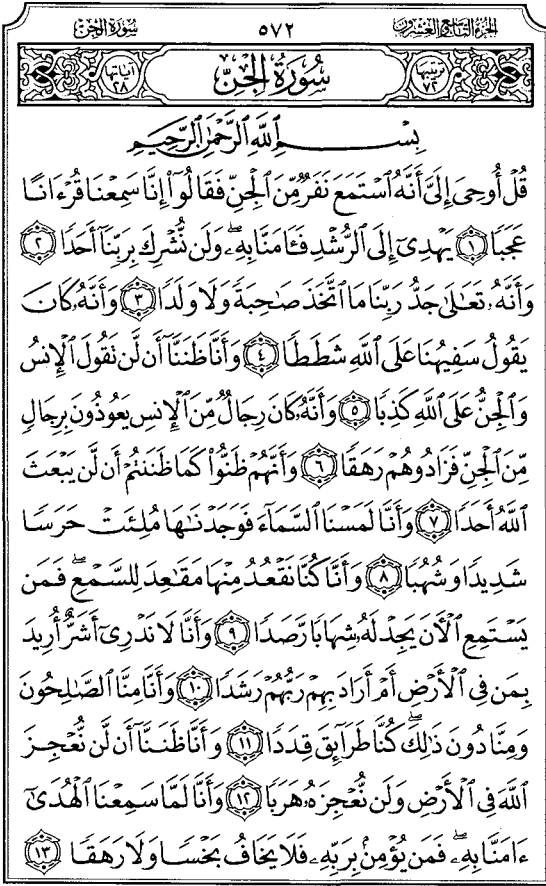 الجزء التاسع والعشرون ٥٧٢ سورة الجن
ترتيبها ٧٢ سُورَةُ الجِنِّ آياتها ٢٨
بِسْمِ اللَّهِ الرَّحْمَٰنِ الرَّحِيمِ
قُلْ أُوحِىَ إِلَىَّ أَنَّهُ ٱسْتَمَعَ نَفَرٌ مِّنَ ٱلْجِنِّ فَقَالُوٓا۟ إِنَّا سَمِعْنَا قُرْءَانًا
عَجَبًا ١ يَهْدِىٓ إِلَى ٱلرُّشْدِ فَـَٔامَنَّا بِهِۦ ۖ وَلَن نُّشْرِكَ بِرَبِّنَآ أَحَدًا ٢
وَأَنَّهُۥ تَعَٰلَىٰ جَدُّ رَبِّنَا مَا ٱتَّخَذَ صَٰحِبَةً وَلَا وَلَدًا ٣ وَأَنَّهُۥ كَانَ
يَقُولُ سَفِيهُنَا عَلَى ٱللَّهِ شَطَطًا ٤ وَأَنَّا ظَنَنَّآ أَن لَّن تَقُولَ ٱلْإِنسُ
وَٱلْجِنُّ عَلَى ٱللَّهِ كَذِبًا ٥ وَأَنَّهُۥ كَانَ رِجَالٌ مِّنَ ٱلْإِنسِ يَعُوذُونَ بِرِجَالٍ
مِّنَ ٱلْجِنِّ فَزَادُوهُمْ رَهَقًا ٦ وَأَنَّهُمْ ظَنُّوا۟ كَمَا ظَنَنتُمْ أَن لَّن يَبْعَثَ
ٱللَّهُ أَحَدًا ٧ وَأَنَّا لَمَسْنَا ٱلسَّمَآءَ فَوَجَدْنَٰهَا مُلِئَتْ حَرَسًا
شَدِيدًا وَشُهُبًا ٨ وَأَنَّا كُنَّا نَقْعُدُ مِنْهَا مَقَٰعِدَ لِلسَّمْعِ ۖ فَمَن
يَسْتَمِعِ ٱلْـَٔانَ يَجِدْ لَهُۥ شِهَابًا رَّصَدًا ٩ وَأَنَّا لَا نَدْرِىٓ أَشَرٌّ أُرِيدَ
بِمَن فِى ٱلْأَرْضِ أَمْ أَرَادَ بِهِمْ رَبُّهُمْ رَشَدًا ١٠ وَأَنَّا مِنَّا ٱلصَّٰلِحُونَ
وَمِنَّا دُونَ ذَٰلِكَ ۖ كُنَّا طَرَآئِقَ قِدَدًا ١١ وَأَنَّا ظَنَنَّآ أَن لَّن نُّعْجِزَ
ٱللَّهَ فِى ٱلْأَرْضِ وَلَن نُّعْجِزَهُۥ هَرَبًا ١٢ وَأَنَّا لَمَّا سَمِعْنَا ٱلْهُدَىٰٓ
ءَامَنَّا بِهِۦ ۖ فَمَن يُؤْمِنۢ بِرَبِّهِۦ فَلَا يَخَافُ بَخْسًا وَلَا رَهَقًا ١٣